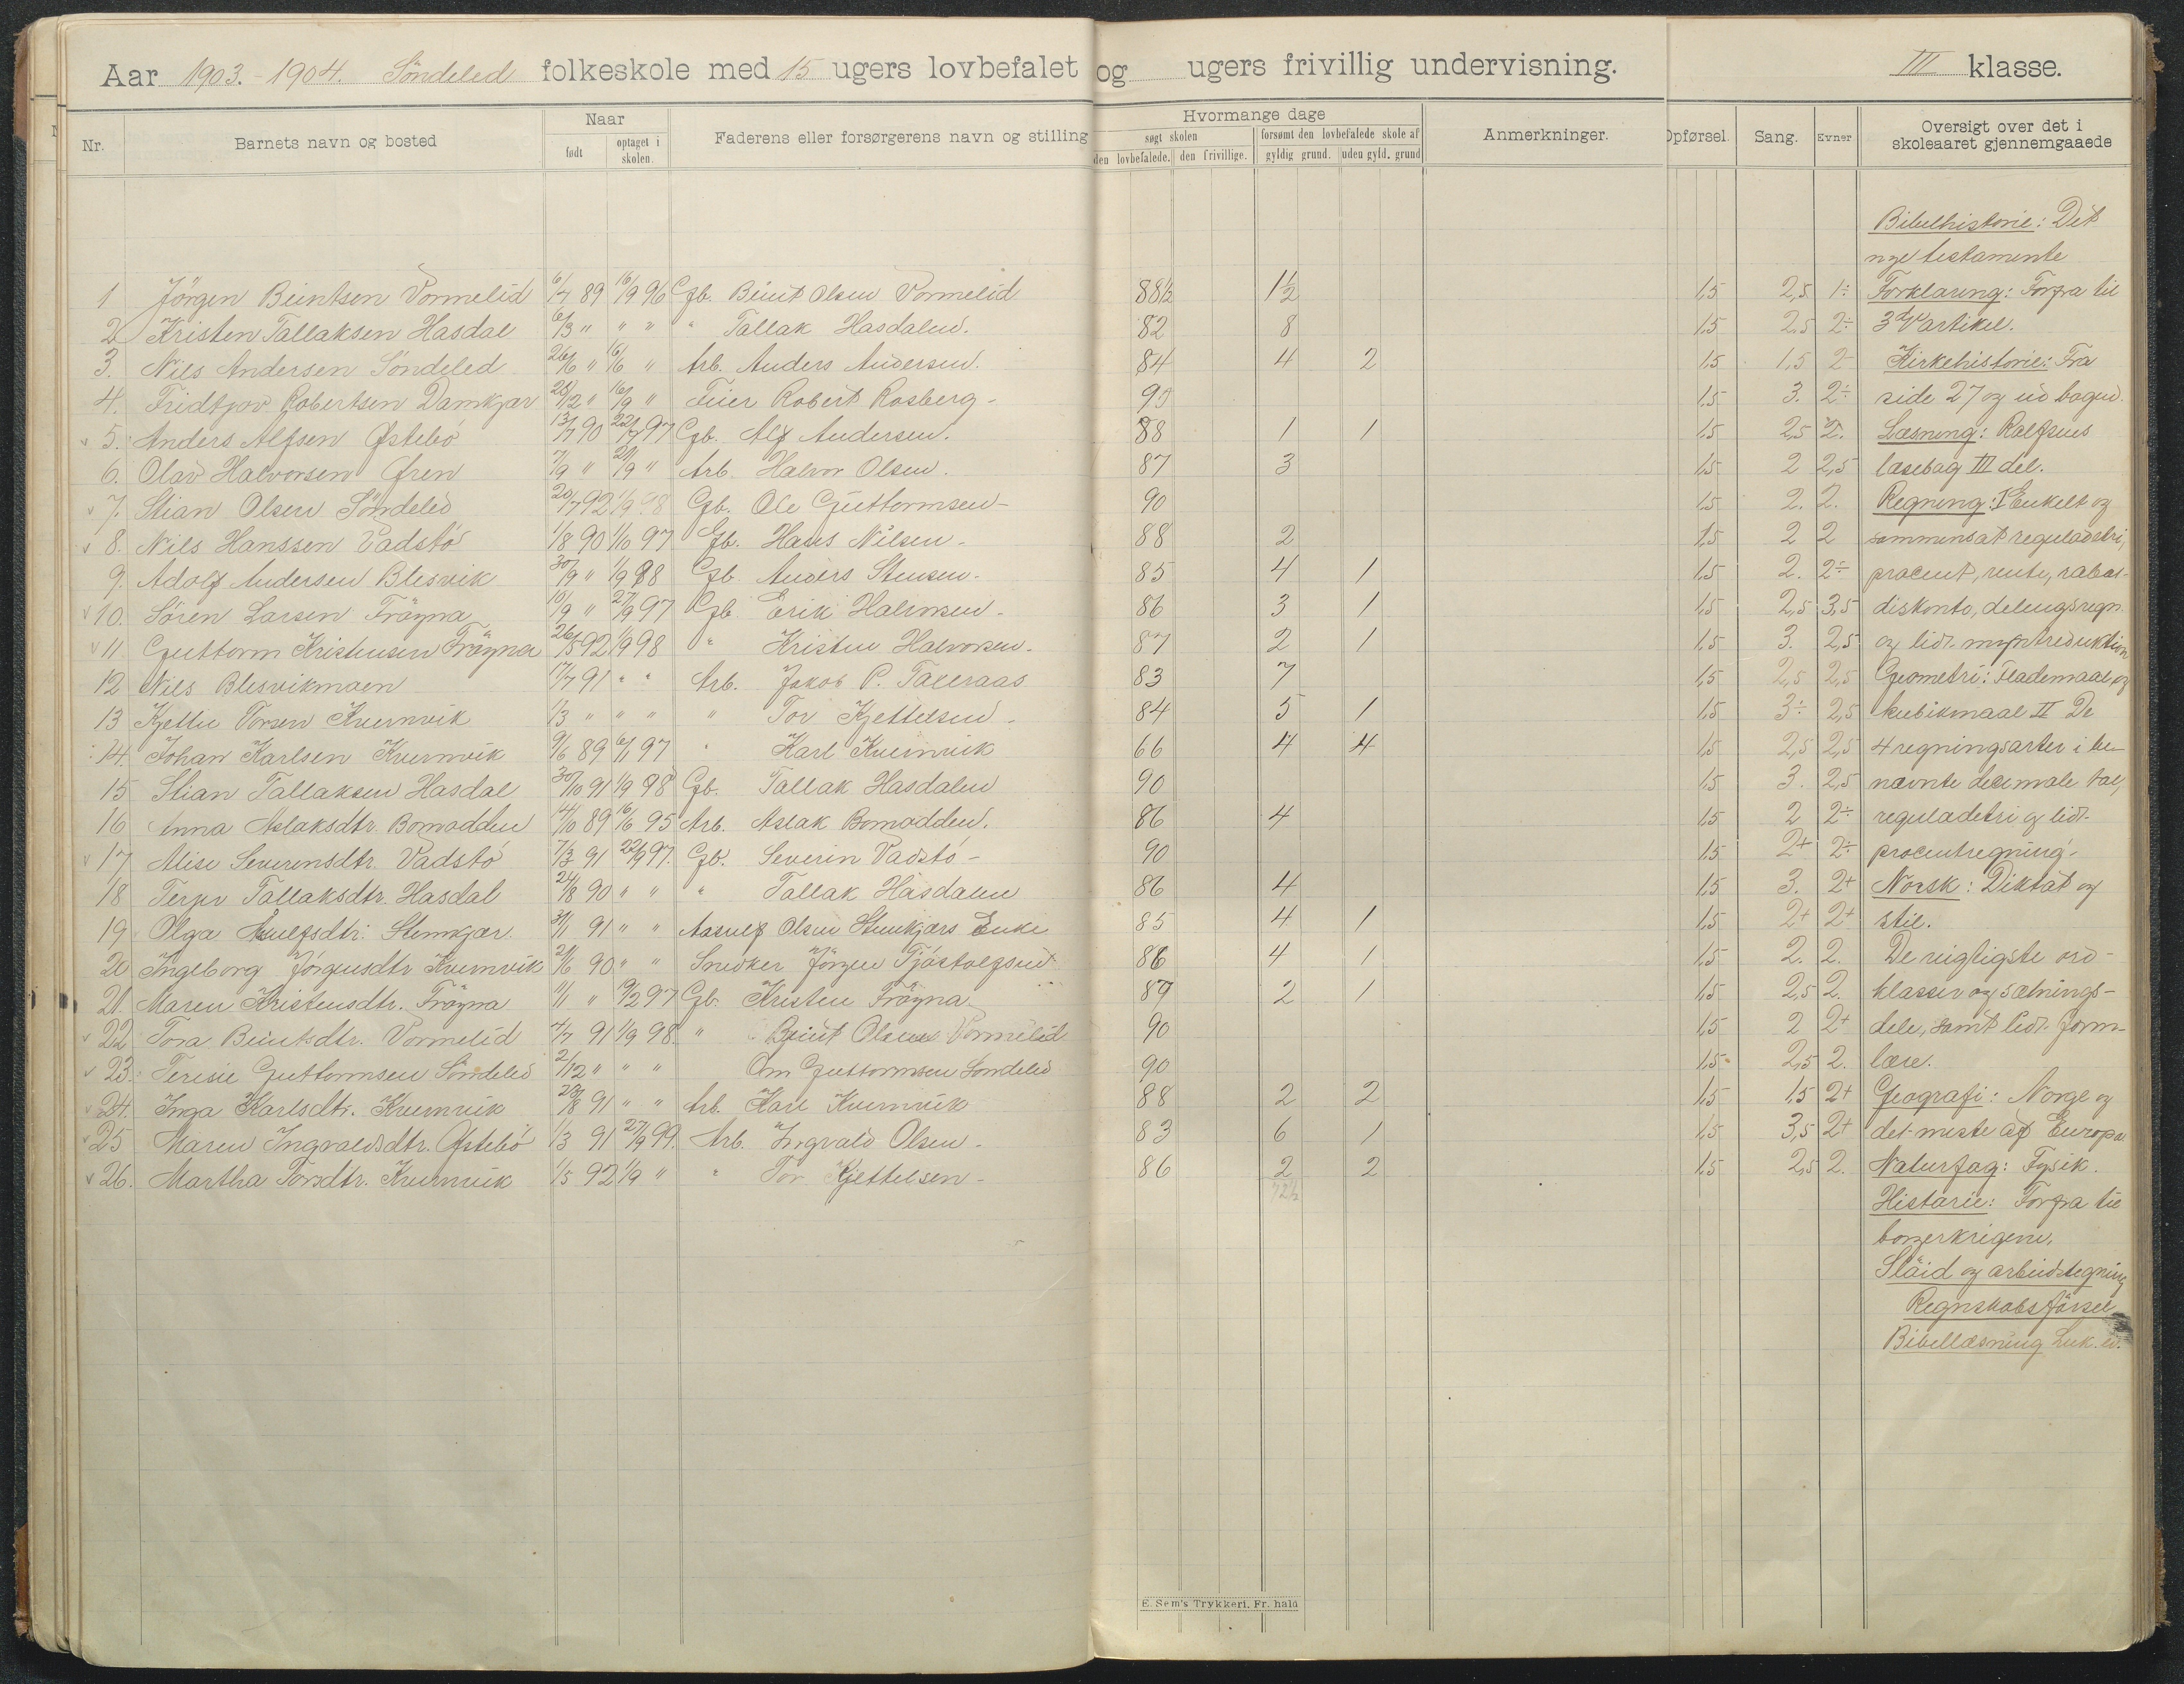 Aar 1903.-1904. Söndeled folkeskole med 15 ugers lovbefalet og ugers frivillig undervisning. III klasse.
Nr. Barnets navn og bosted Naar født optaget i skolen. Faderens eller forsørgerens navn og stilling Hvormange dage søgt skolen den lovbefalede. den frivillige. forsømt den lovbefalede skole af gyldig grund. uden gyld. grund Anmerkninger. Opførsel. Sang. Evner Oversigt over det i skoleaaret gjennemgaaede
Bibelhistorie: Det
nye testamente
1 Jörgen Beintsen Vormelid 6/7 89 16/9 96 Gb. Beint Olsen Vormelid 88½ 1½ 1,5 2,5 1÷ Forklaring: Forfra til
2 Kristen Tallaksen Hasdal 6/3 " " " " Tallak Hasdalen. 82 8 1,5 2,5 2÷ 3 artikel.
3. Nils Andersen Söndeled 26/6 " 16/6 " Arb. Anders Andersen. 84 4 2 1,5 1,5 2 Kirkehistorie: Fra
4. Fridtjov Robertsen Damkjær 25/12 " 16/9 " Feier Robert Rosberg - 90 1,5 3. 2÷ side 27 og ud bogen.
v 5. Anders Alfsen Østebö 13/7 90 22/9 97 Gb. Alf Andersen. 88 1 1 1,5 2,5 2. Læsning: Rolfsens
6. Olav Halvorsen Øren 7/9 " 21/9 " Arb. Halvor Olsen. 87 3 1,5 2 2,5 læsebog III del.
v 7. Stian Olsen Söndeled 20/7 92 1/9 98 Gb. Ole Guttormsen - 90 1,5 2. 2. Regning: I Enkelt og
v 8. Nils Hanssen Vadstö 1/8 90 1/10 97 Gb. Hans Nilsen - 88 2 1,5 2 2 sammensat reguladetri,
9. Adolf Andersen Blesvik 30/9 " 1/9 98 Gb. Anders Stensen. 85 4 1 1,5 2. 2÷ procent, rente, rabat-
v 10. Sören Larsen Fröyna 10/9 " 27/9 97 Gb. Erik Halvorsen - 86 3 1 1,5 2,5 3,5 diskonto, delingsregn.
v 11. Guttorm Kristensen Fröyna 26/5 92 1/9 98 " Kristen Halvorsen - 87 2 1 1,5 3. 2,5 og lidt myntreduktion
12 Nils Blesvikmoen 17/7 91 " " Arb. Jakob P. Tallraas 83 7 1,5 2,5 2,5 Geometri: Flademaal og
13 Kjettil Torsen Kvernvik 1/3 " " " " Tor Kjettelsen - 84 5 1 1,5 3÷ 2,5 kubikmaal II De
14. Johan Karlsen Kvernvik 9/6 89 6/1 97 " Karl Kvernvik 66 4 4 1,5 2,5 2,5 4 regningsarter i be-
15 Stian Tallaksen Hasdal 30/10 91 1/9 98 Gb. Tallak Hasdalen 90 1,5 3. 2,5 nævnte decimale tal,
16 Anna Aslaksdtr. Bomodden 14/10 89 16/6 95 Arb. Aslak Bomodden. 86 4 1,5 2 2÷ reguladetri og lidt
v 17, Alise Severensdtr. Vadstö 7/3 91 22/9 97. Gb. Severin Vadstö - 90 1,5 2+ 2÷ procentregning.
18 Terjer Tallaksdtr. Hasdal 24/8 90 " " " Tallak Hasdalen 86 4 1,5 3. 2+ Norsk: Diktat og
19 Olga Asulfsdtr. Stenkjær. 31/1 91 " " Aasulf Olsen Stenkjærs Enke 85 4 1 1,5 2+ 2+ stil.
20 Ingeborg Jörgensdtr Kvernvik 21/6 90 " " Snedker Jörgen Tjöstolfsen 86 4 1 1,5 2. 2. De vigtigste ord-
21. Maren Kristensdtr. Fröyna 11/1 " 19/2 97 Gb. Kristen Fröyna. 87 2 1 1,5 2,5 2. klasser og sætnings-
v 22 Tora Beintsdtr. Vormelid 7/7 91 1/9 98. " Beint Olsen Vormelid 90 1,5 2 2+ dele, samt lidt form-
v 23. Terisie Guttormsen Söndeled 2/12 " " " Om Guttormsen Söndeled 90 1,5 2,5 2. lære.
24. Inga Karlsdtr. Kvernvik 28/8 91 " " Arb. Karl Kvernvik 88 2 2 1,5 1,5 2+ Geografi: Norge og
v 25 Maren Ingvaldsdtr. Østebö 1/3 91 27/9 99. Arb. Ingvald Olsen - 83 6 1 1,5 3,5 2+ det meste af Europa
v 26. Martha Torsdtr. Kvernvik 1/5 92 1/9 " " Tor Kjettelsen - 86 2 2 1,5 2,5 2. Naturfag: Fysik.
72½ Historie: Forfra til
borgerkrigene.
Slöid og arbeidstegning
Regnskabsförsel
Bibellæsning Luk. ev.
E. Sem's Trykkeri, Fr. hald